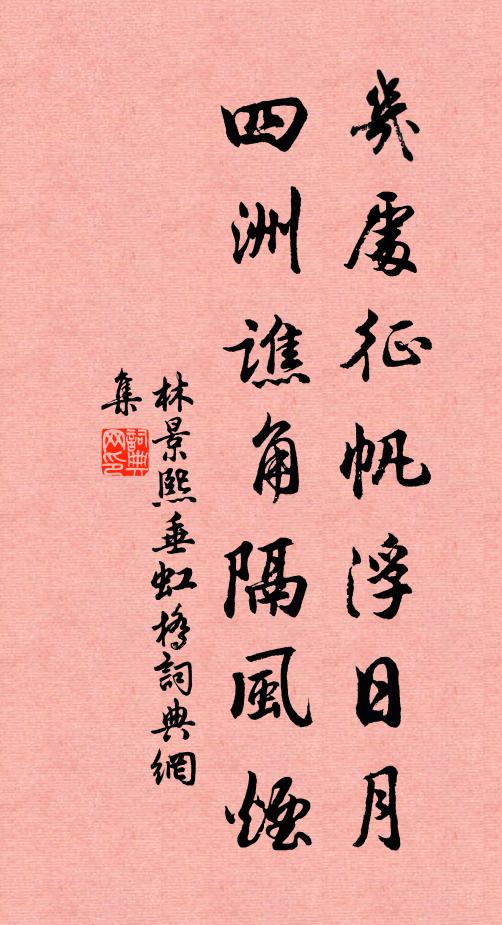 幾處征帆浮日月
四洲譙角隔風煙
林景熙垂虹橋詞典網
集
詞典網印